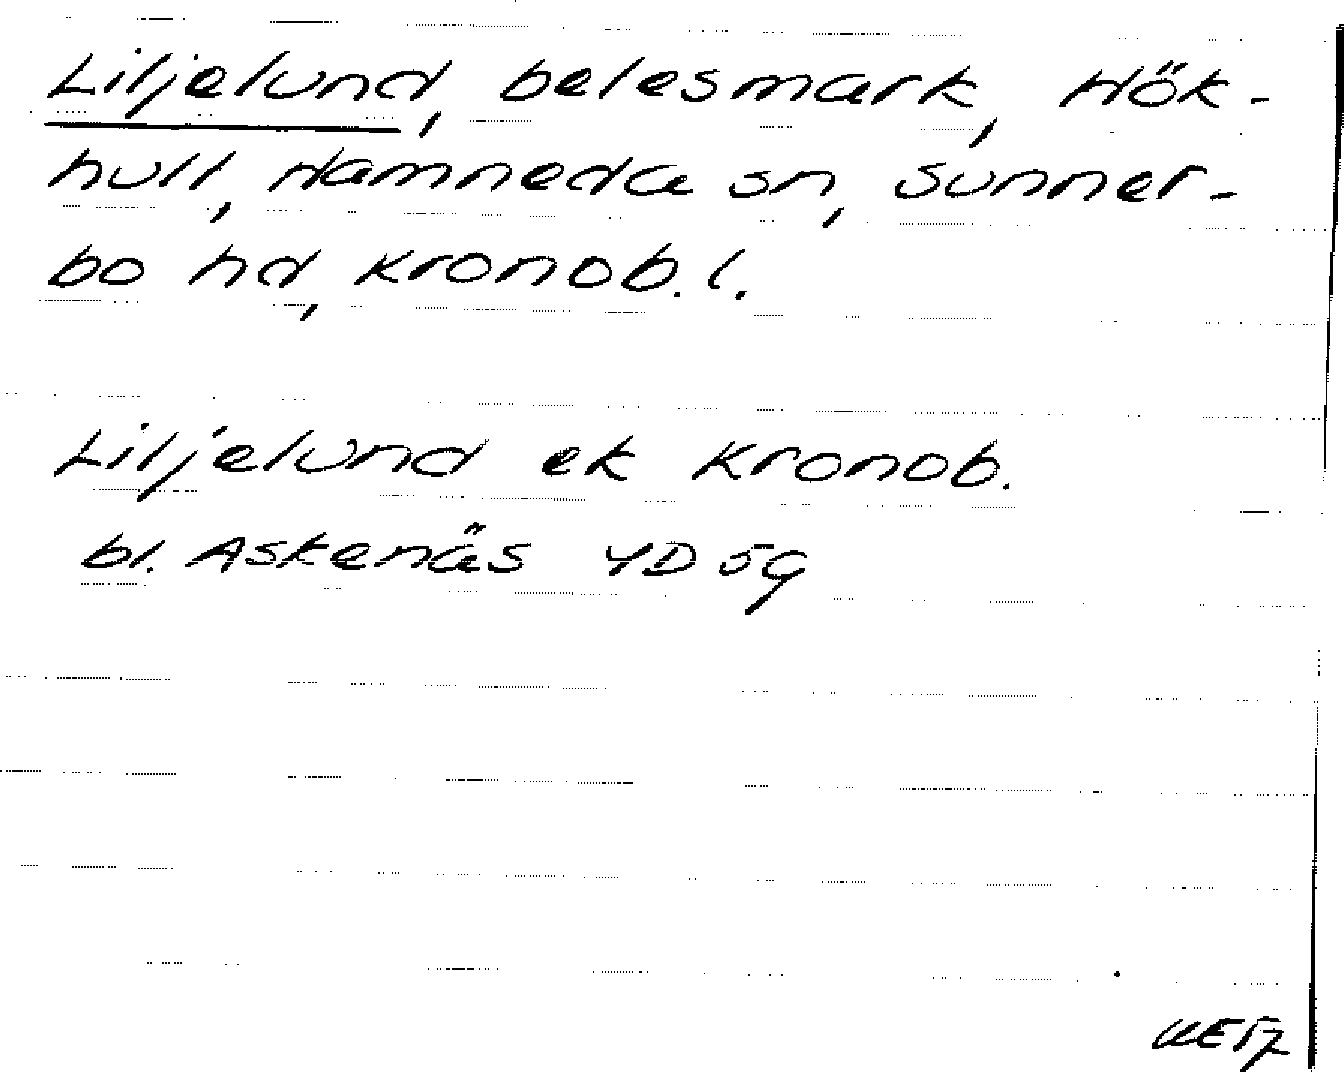 Liljelund, belesmark, Hök-
hult, Hamneda sn, Sunner-
bo hd, Kronob. l.
Liljelund ek Kronob.
bl. Askenäs 4D 5g